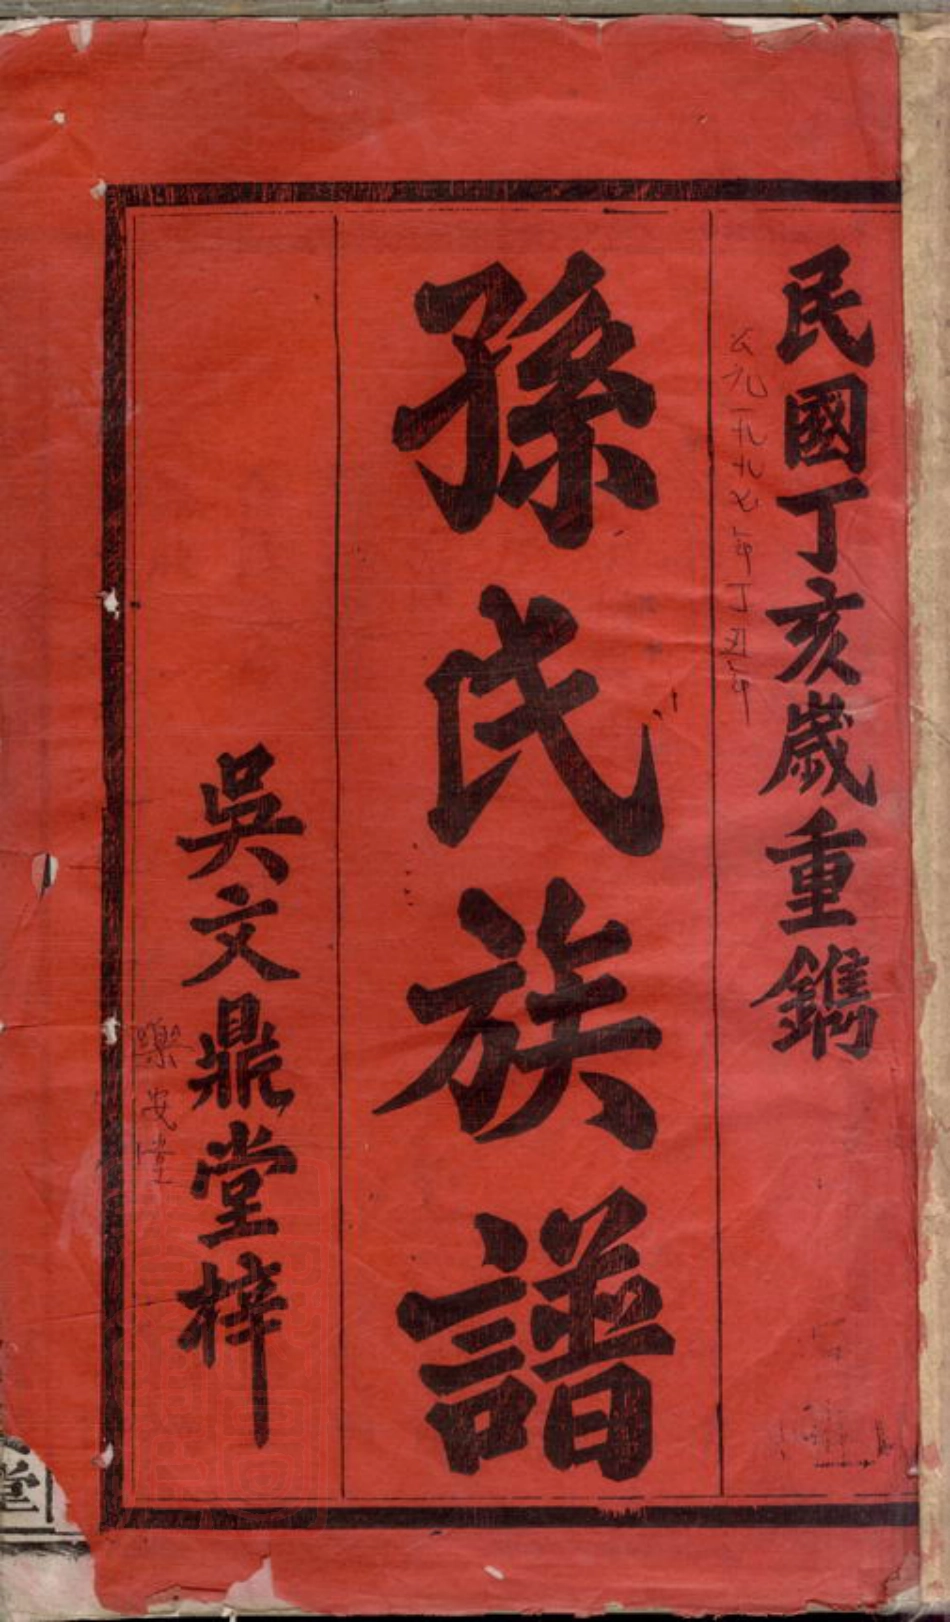 民國丁亥歲重鐫
公元一九九七年丁丑年
孫氏族譜
吳文鼎堂梓
樂安堂
堂